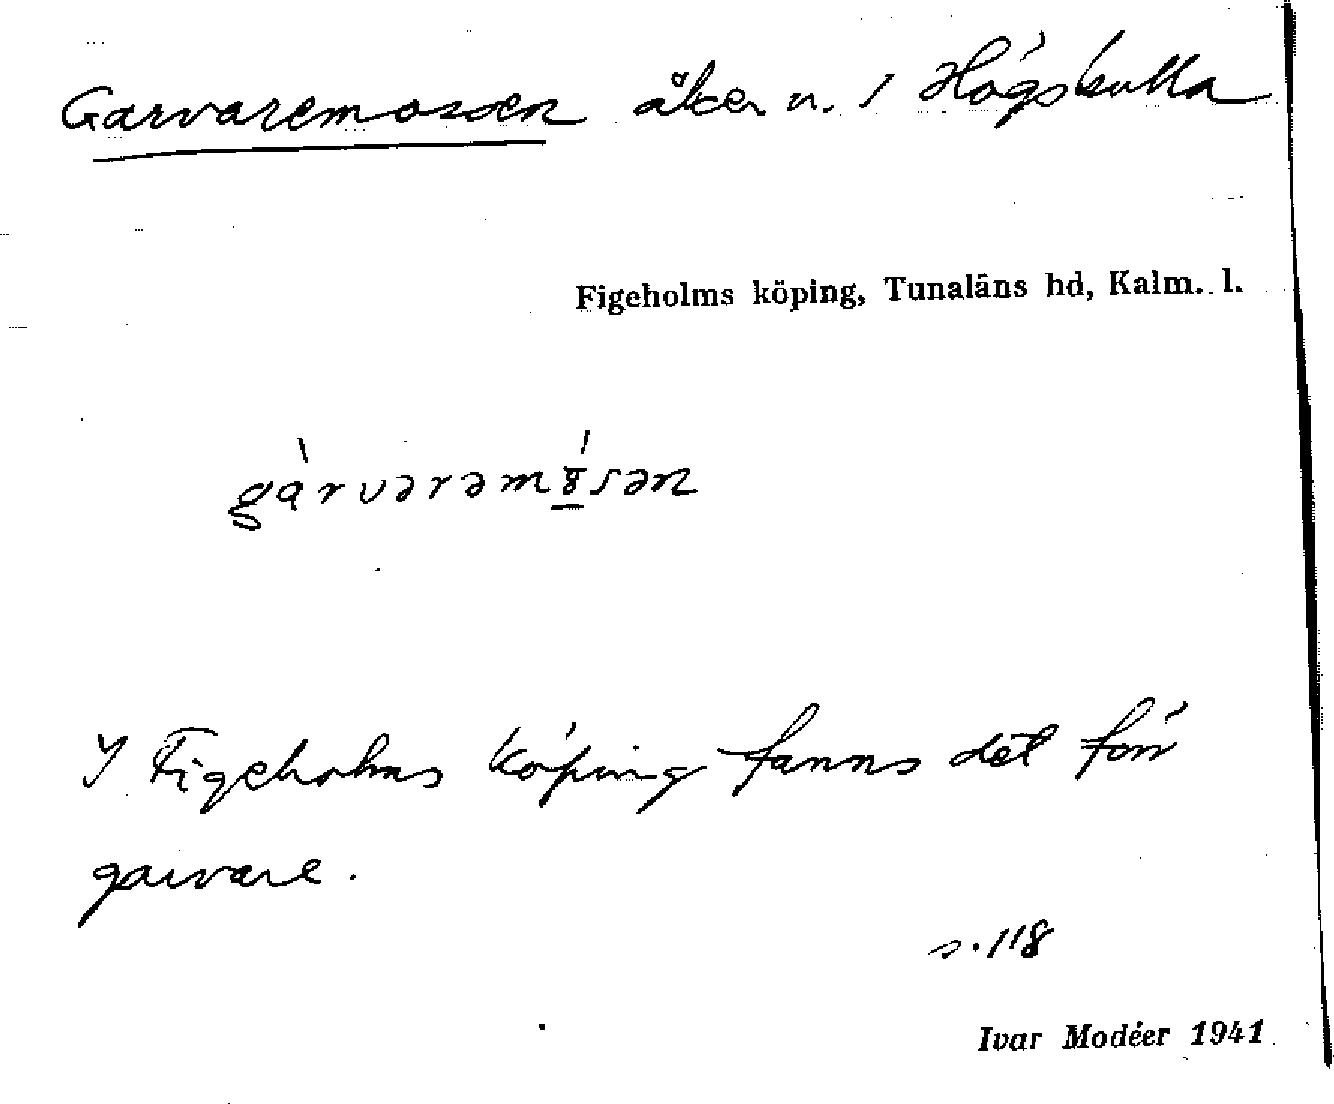 Garvaremossen åker n. 1 Högskulla
Figeholms köping, Tunaläns hd, Kalm. l.
gàrvərəmó̱sən
I Figeholms köping fanns det förr
garvare.
s. 118
Ivar Modéer 1941